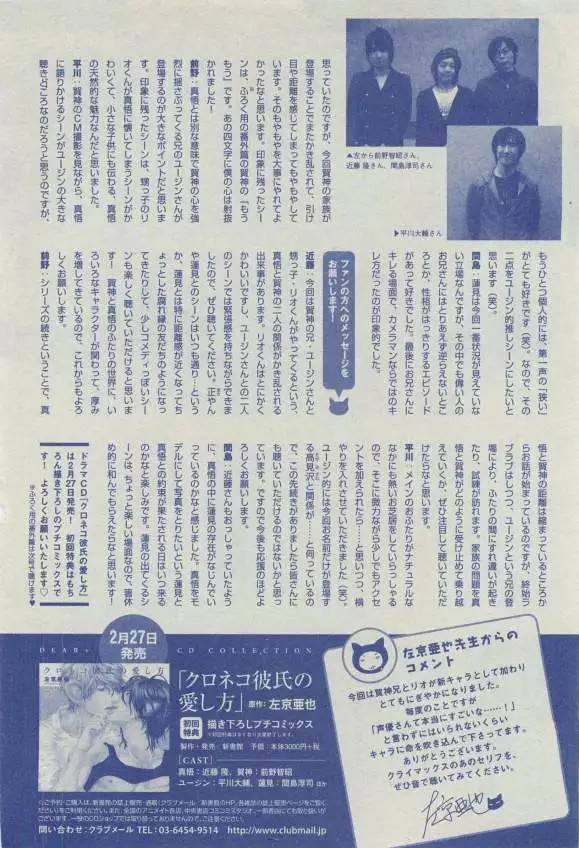 ▲左から前野智昭さん、
近藤 隆さん、間島淳司さん
▶平川大輔さん
思っていたのですが、今回賀神の家族が
登場することでまたかき乱されて、引け
目や距離を感じてしまってもやもやして
います。そのもやもやを大事にやれてよ
かったなと思います。印象に残ったシー
ンは、ふろく用の番外篇の賀神の「もう
もう」です。あの四文字に僕の心は射抜
かれました！
前野：真悟とは別な意味で賀神の心を強
烈に揺さぶってくる兄のユージンさんが
登場するのが大きなポイントだと思いま
す。印象に残ったシーンは、甥っ子のリ
オくんが真悟に懐いてしまうシーンがか
わいくて、小さな子供にも伝わる、真悟
の天然的な魅力なんだと思いました。
平川：賀神のCM撮影を見ながら、真悟
に語りかけるシーンがユージンの大きな
聴きどころなのだろうと思うのですが、
もうひとつ個人的には、第一声の「狭い」
がとても好きです（笑）。なので、その
二点をユージン的推しシーンにしたいと
思います（笑）。
間島：蓮見は今回一番状況が見えていな
い立場なんですが、その中でも偉い人の
お兄さんにはとりあえず逆らえないとこ
ろとか、性格がはっきりするエピソード
があって好きでした。最後にお兄さんに
キレる場面で、カメラマンならではのキ
レ方だったのが印象的でした。
ファンの方へのメッセージを
お願いします！
近藤：今回は賀神の兄・ユージンさんと
甥っ子・リオくんがやってくるという、
真悟と賀神の二人の関係がかき乱される
出来事があります。リオくんはとにかく
かわいいですし、ユージンさんとの二人
のシーンでは緊張感を持ちながらできま
したので、ぜひ聴いてください。正やん
や蓮見とのシーンはいつも通り…という
か、蓮見とは特に距離感が近くなってち
ょっとした腐れ縁の友だちのようになっ
てきたりして、少しコメディっぽいシー
ンも楽しく聴いていただけると思いま
す！　賀神と真悟のふたりの世界に、い
ろいろなキャラクターが関わって、厚み
を増してきているので、これからもよろ
しくお願いします。
前野：シリーズの続きということで、真
悟と賀神の距離は縮まっているところか
らお話が始まっているのですが、終始ラ
ブラブはしつつ、ユージンという兄の登
場により、ふたりの間にすれ違いが起き
たり、試練が訪れます。家族の問題を真
悟と賀神がどのように受け止めて乗り越
えていくか、ぜひ注目して聴いていただ
けたらなと思います。
平川：メインのおふたりがナチュラルな
なかにも熱いお芝居をしていらっしゃる
ので、そこに微力ながら少しでもアクセ
ントを加えられたら……と思いつつ、横
やりを入れさせていただきました（笑）。
ユージン的には今回お名前だけが登場す
る高見沢と関係が……と伺っているの
で、この先続きがありましたら皆さんに
も聴いていただけるのではないかと思っ
ています。ですので今後も応援のほどよ
ろしくお願いします。
間島：近藤さんもおっしゃっていたよう
に、真悟の中に蓮見の存在がなじんでい
っているのかなと感じました。真悟をモ
デルにして写真をとりたいという蓮見と
真悟との約束が果たされる日はいつ来る
のかなと楽しみです。蓮見の出てくるシ
ーンは、ちょっと楽しい場面なので、皆休
め的に和んでもらえたらなと思います！
ドラマCD「クロネコ彼氏の愛し方」
は2月27日発売！　初回特典はもち
ろん描き下ろしのプチコミックスで
す！　よろしくお願いいたします♡
※ふろく用の番外篇は次号で聴けます♥
左京亜也先生からの
コメント
今回は賀神兄とリオが新キャラとして加わり
とてもにぎやかになりました。
毎度のことですが
「声優さんて本当にすごいな……！」
と言わずにはいられないくらい
キャラに命を吹き込んで下さってます。
ありがとうございます。
クライマックスのあのセリフを、
ぜひ音で聴いてみてください。
左京亜也
2月27日
発売
DEAR+ CD COLLECTION
クロネコ彼氏の愛し方
左京亜也
「クロネコ彼氏の
愛し方」 原作：左京亜也
初回
特典
描き下ろしプチコミックス
製作＋発売　新書館　予価：本体3000円＋税
［CAST］
真悟：近藤 隆、賀神：前野智昭
ユージン：平川大輔、蓮見：間島淳司 ほか
問い合わせ：クラブメール TEL:03-6454-9514　http://www.clubmail.jp